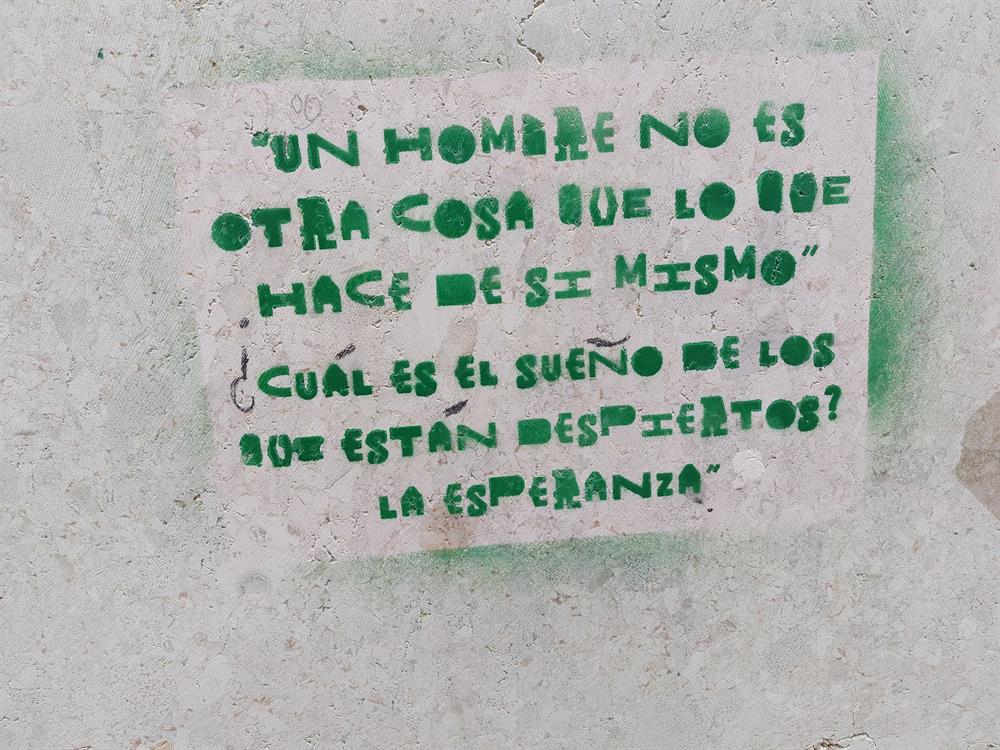 "UN HOMBRE NO ES
OTRA COSA QUE LO QUE
HACE DE SI MISMO"
¿CUÁL ES EL SUEÑO DE LOS
QUE ESTÁN DESPIERTOS?
LA ESPERANZA"